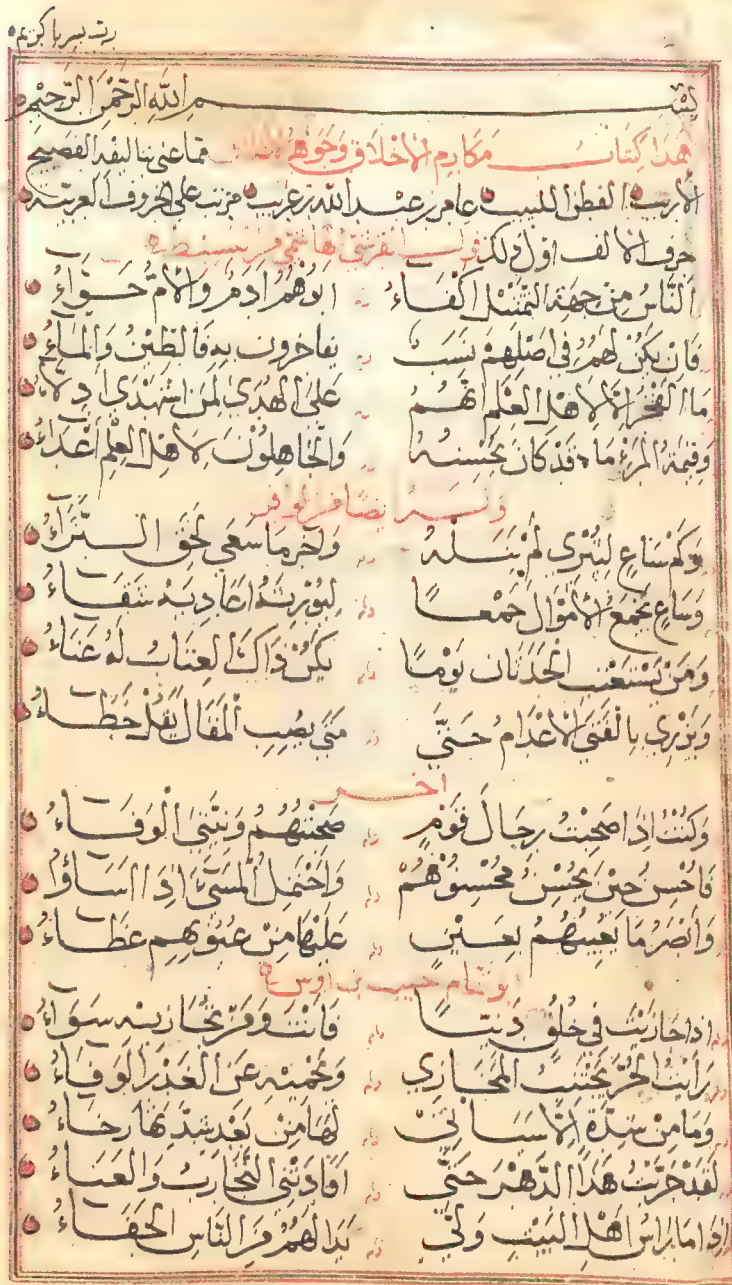 رب يسر يا كريم
بسم الله الرحمن الرحيم
هذا كتاب مكارم الاخلاق وجوهر مما عني بتاليفه الفصيح
الاريب الفطن اللبيب عامر بن عبد الله بن غريب مرتب على الحروف العربية
حرف الالف اول ذلك
النَّاس من جهة التمثيل اكْفَاءُ ابوهُمُ ادمُ والامُّ حَوَّاءُ
فان يكن لهم في اصلهم نسب يفاخرون به فالطين والماءُ
ما الفخر الا لاهل العلم انهم على الهدى لمن استهدى ادلاءُ
وقيمة المرء ما قد كان يحسنه والجاهلون لاهل العلم اعداءُ
وله ايضا من الوافر
وكم ساع ليثرى لم ينله واخر ما سعى لحق الثراءُ
وساع يجمع الاموال جمعا ليورثه اعاديه شقاءُ
ومن يستعتب الحدثان يوما يكن ذاك العتاب له عناءُ
ويزري بالفتى الاعدام حتى متى يصب المقال يقل خطاءُ
اخر
وكنت اذا صحبت رجال قوم صحبتهم ونيتي الوفاءُ
فاحسن حين يحسن محسنوهم واحتمل المسيء اذا اساؤا
وابصر ما يعيبهم بعين عليها من عيوبهم غطاءُ
ابو تمام حبيب بن اوس
اذا جاريت في خلق دنيا فانت ومن تجاريه سواءُ
رايت الحر يجتنب المخازي ويحميه عن الغدر الوفاءُ
وما من شدة الا سياتي لها من بعد شدتها رخاءُ
لقد جربت هذا الدهر حتى افادتني التجارب والعناءُ
اذا ما راس اهل البيت ولى بدا لهم من الناس الجفاءُ